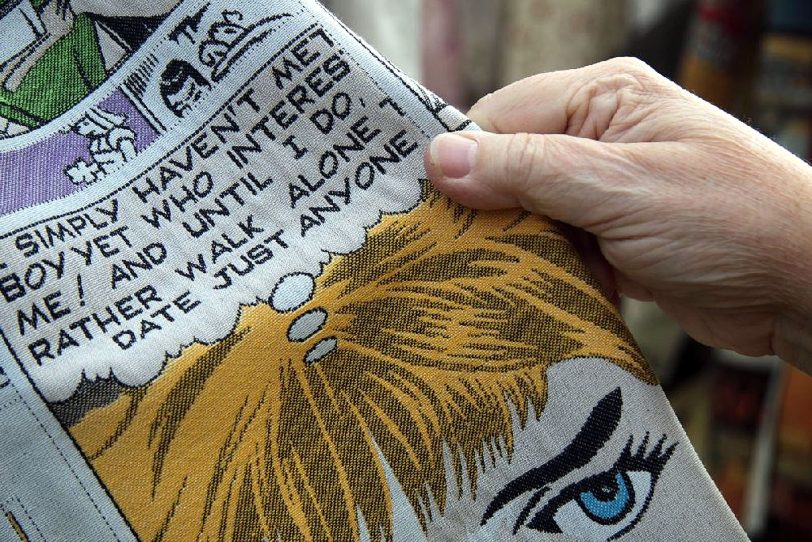 SIMPLY HAVEN'T MET
BOY YET WHO INTERES
ME! AND UNTIL I DO,
RATHER WALK ALONE
DATE JUST ANYONE